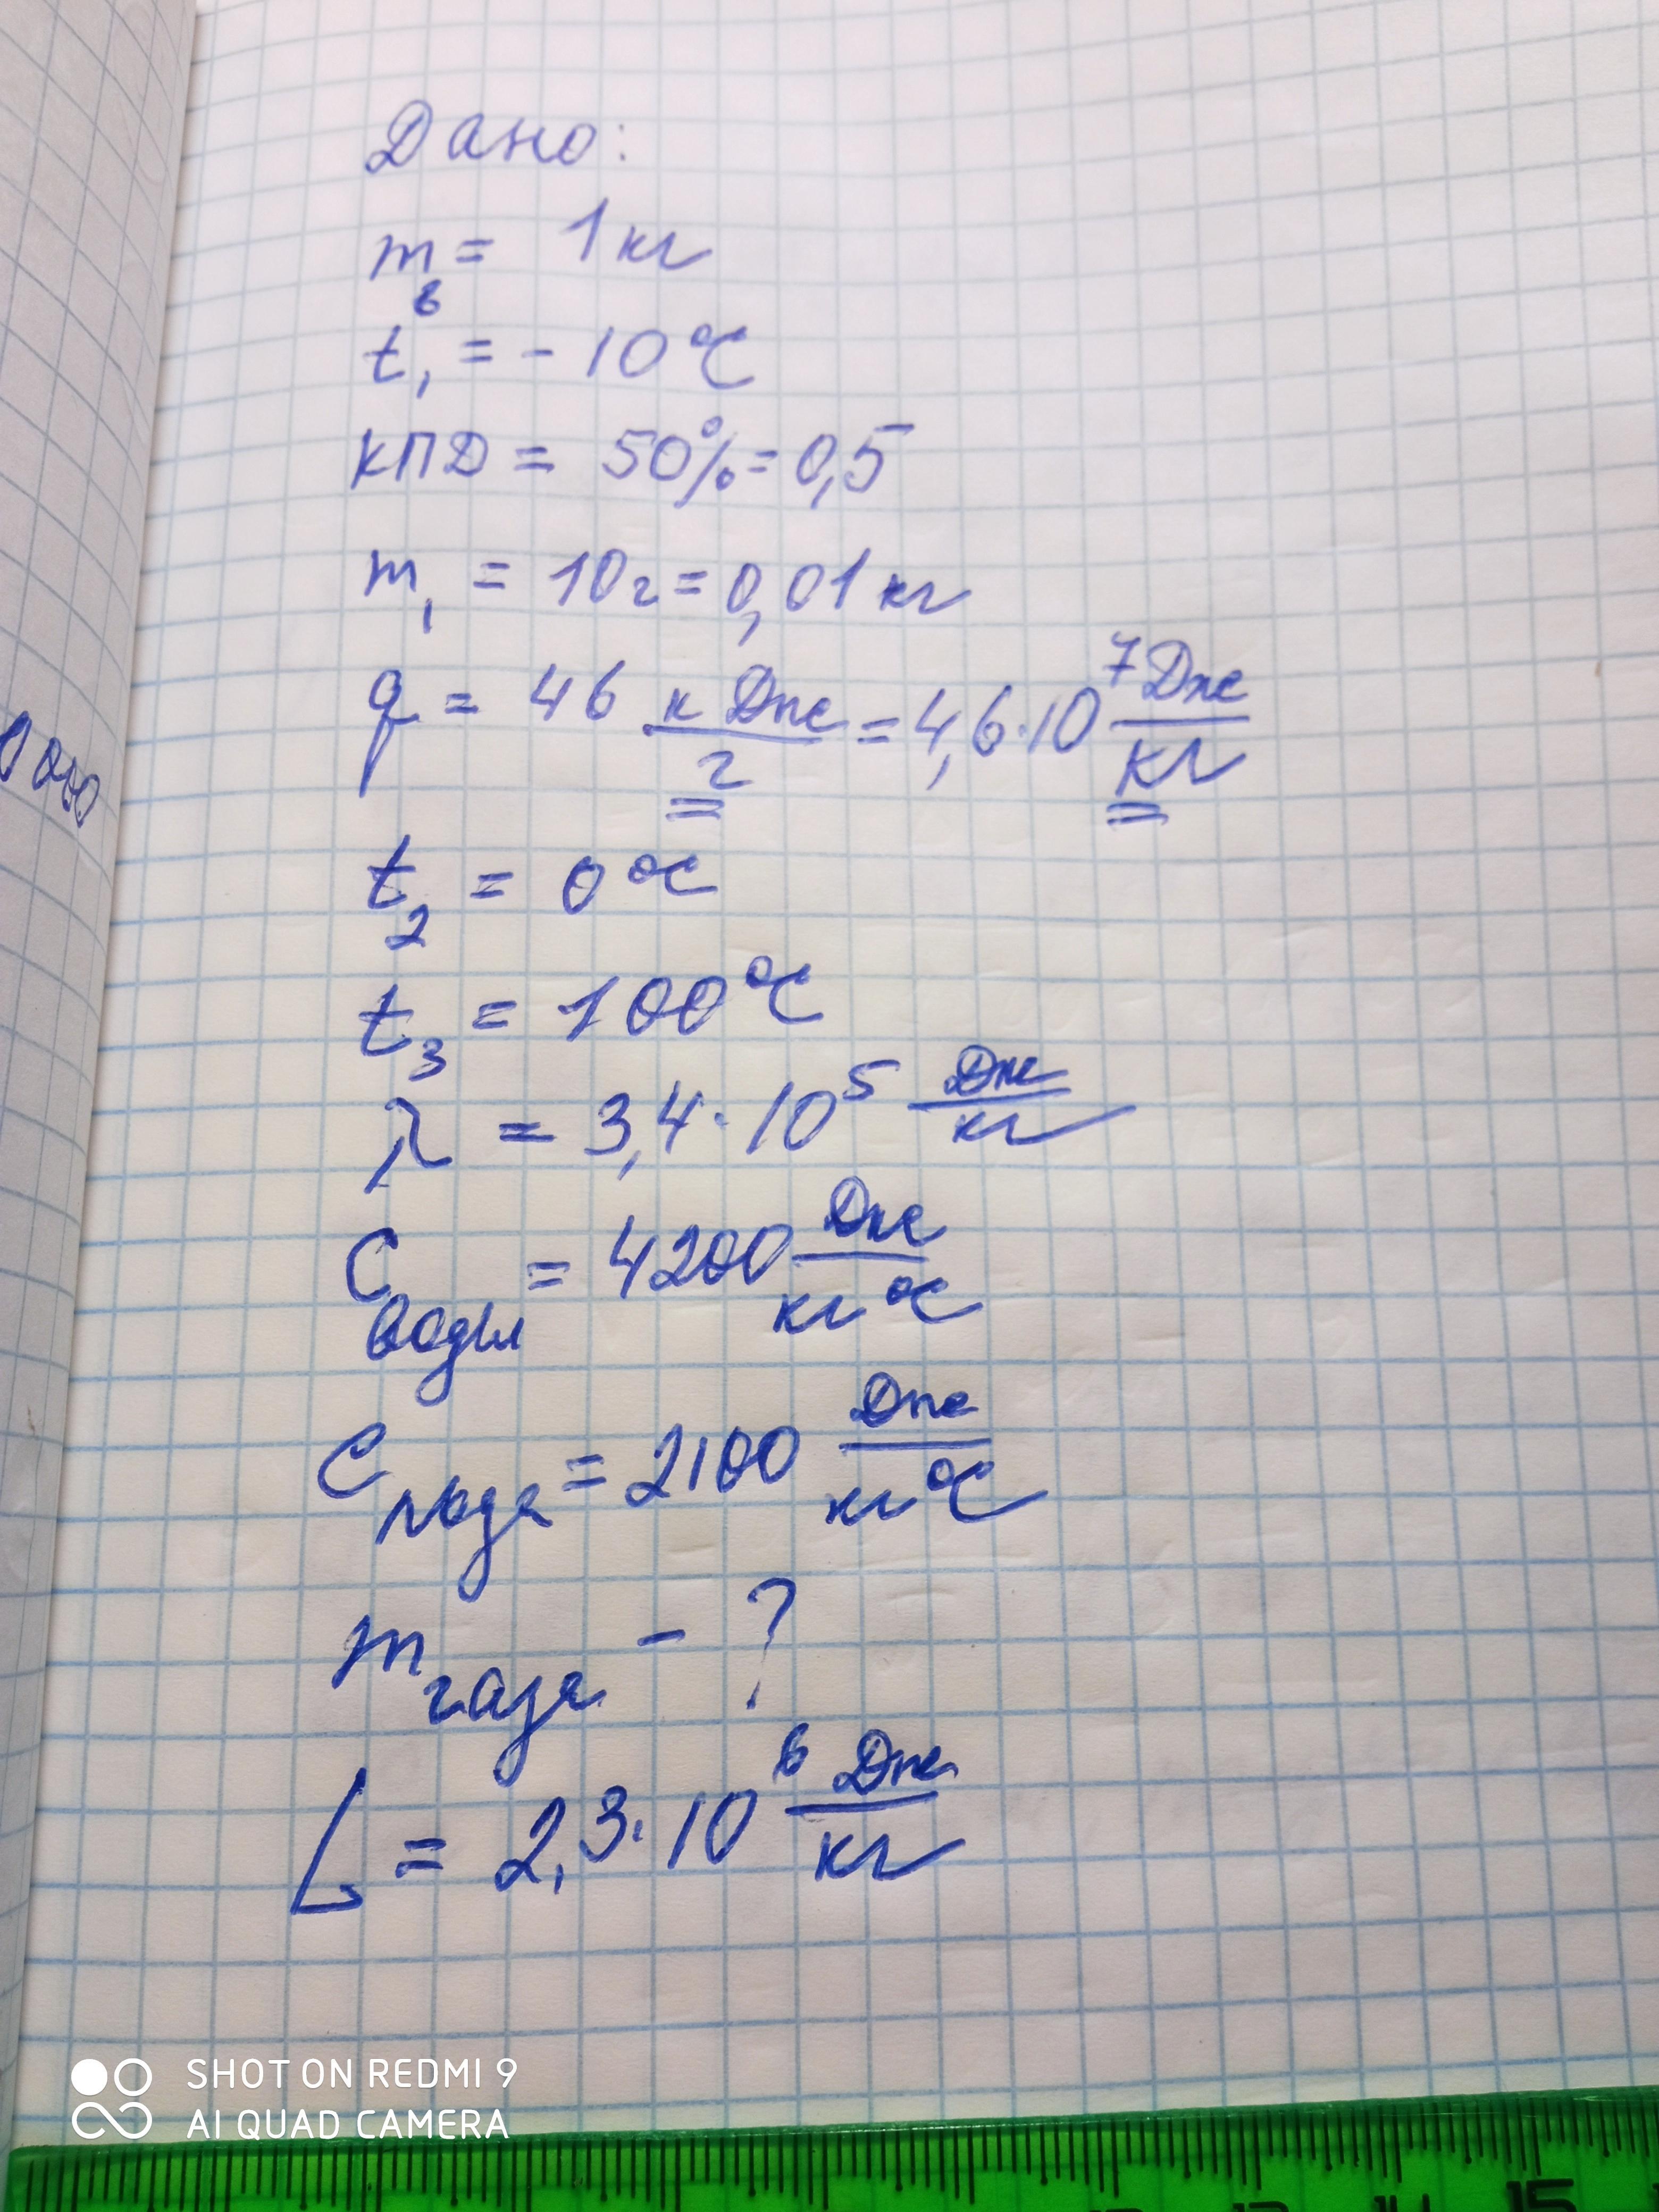 Дано:
m в = 1 кг
t₁ = - 10 °C
КПД = 50% = 0,5
m₁ = 10 г = 0,01 кг
q = 46 кДж/г = 4,6·10⁷ Дж/кг
0 000
t₂ = 0 °C
t₃ = 100 °C
λ = 3,4·10⁵ Дж/кг
C воды = 4200 Дж/кг °C
C льда = 2100 Дж/кг °C
m газа - ?
L = 2,3·10⁶ Дж/кг
SHOT ON REDMI 9
AI QUAD CAMERA
14 15